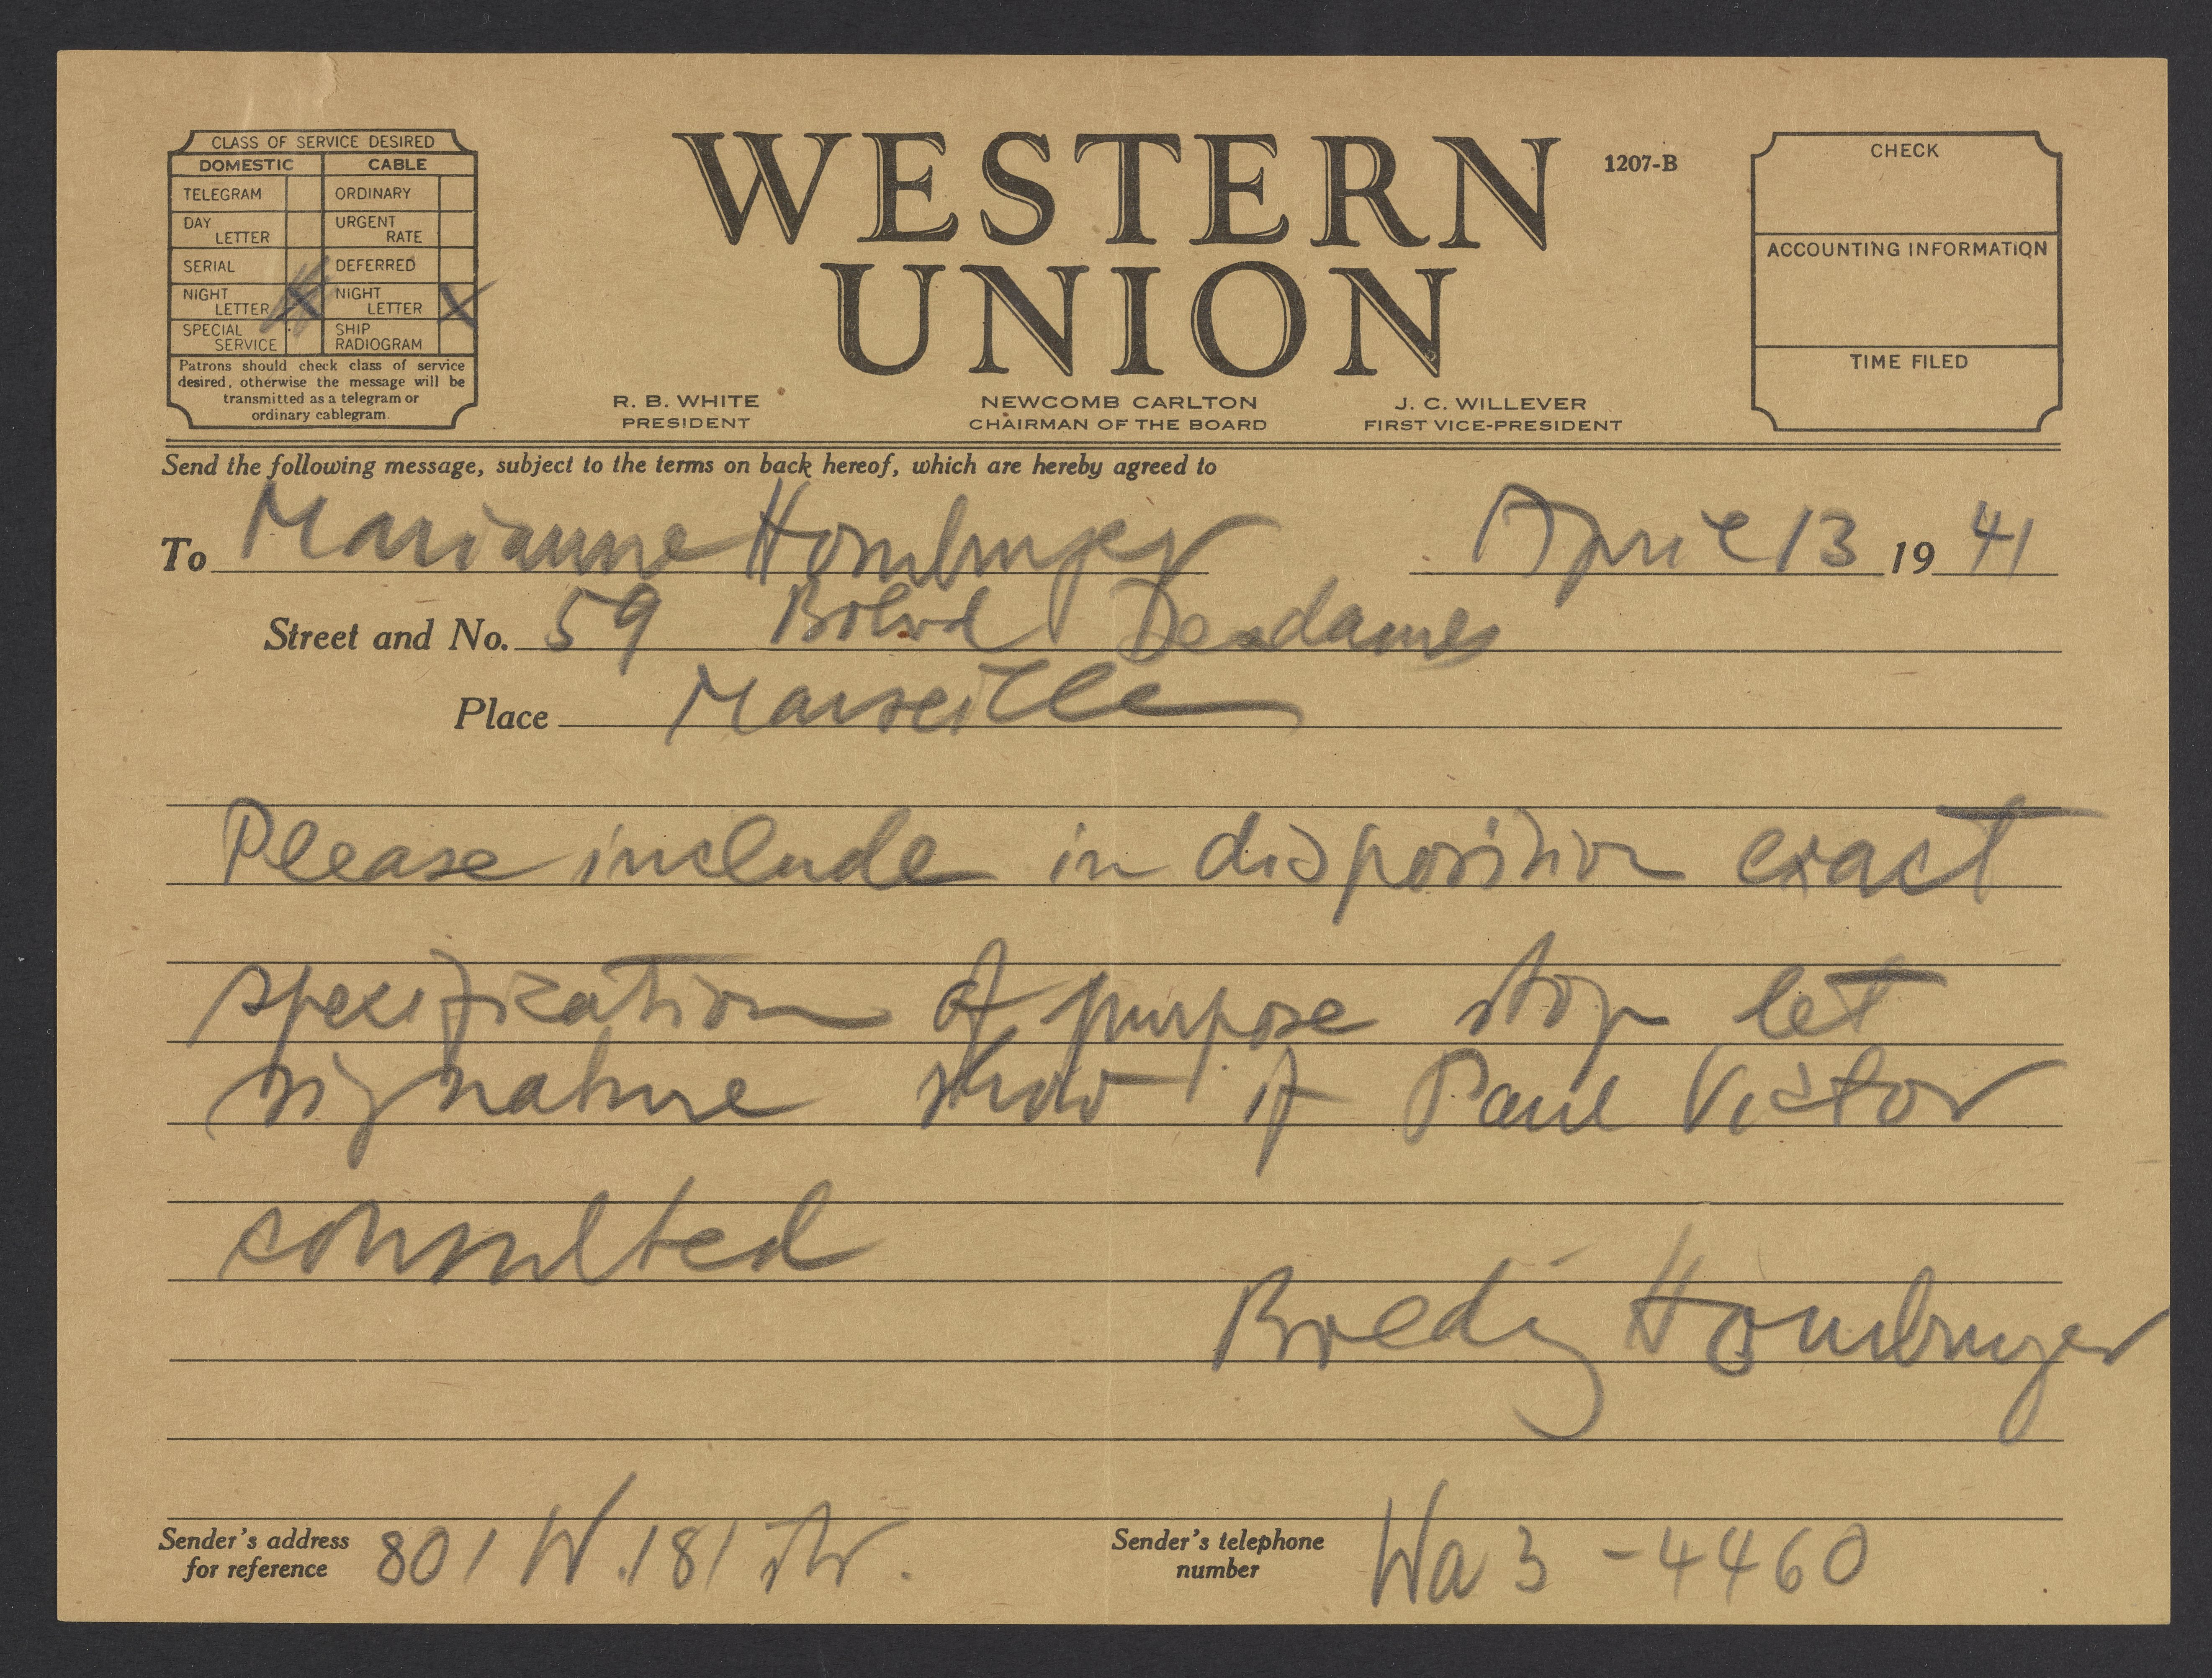 CLASS OF SERVICE DESIRED
DOMESTIC CABLE
TELEGRAM ORDINARY
DAY LETTER URGENT RATE
SERIAL DEFERRED
NIGHT LETTER X NIGHT LETTER X
SPECIAL SERVICE SHIP RADIOGRAM
Patrons should check class of service
desired, otherwise the message will be
transmitted as a telegram or
ordinary cablegram.
WESTERN
UNION
1207-B
R. B. WHITE
PRESIDENT
NEWCOMB CARLTON
CHAIRMAN OF THE BOARD
J. C. WILLEVER
FIRST VICE-PRESIDENT
CHECK
ACCOUNTING INFORMATION
TIME FILED
Send the following message, subject to the terms on back hereof, which are hereby agreed to
To Marianne Homburger April 13 19 41
Street and No. 59 Desdames
Place Marseille
Please include in disposition exact
specification of purpose stop let
signature show if Paul Victor
consulted
Homburger
Sender's address
for reference 801 W. 181 Str.
Sender's telephone
number Wa 3 - 4460